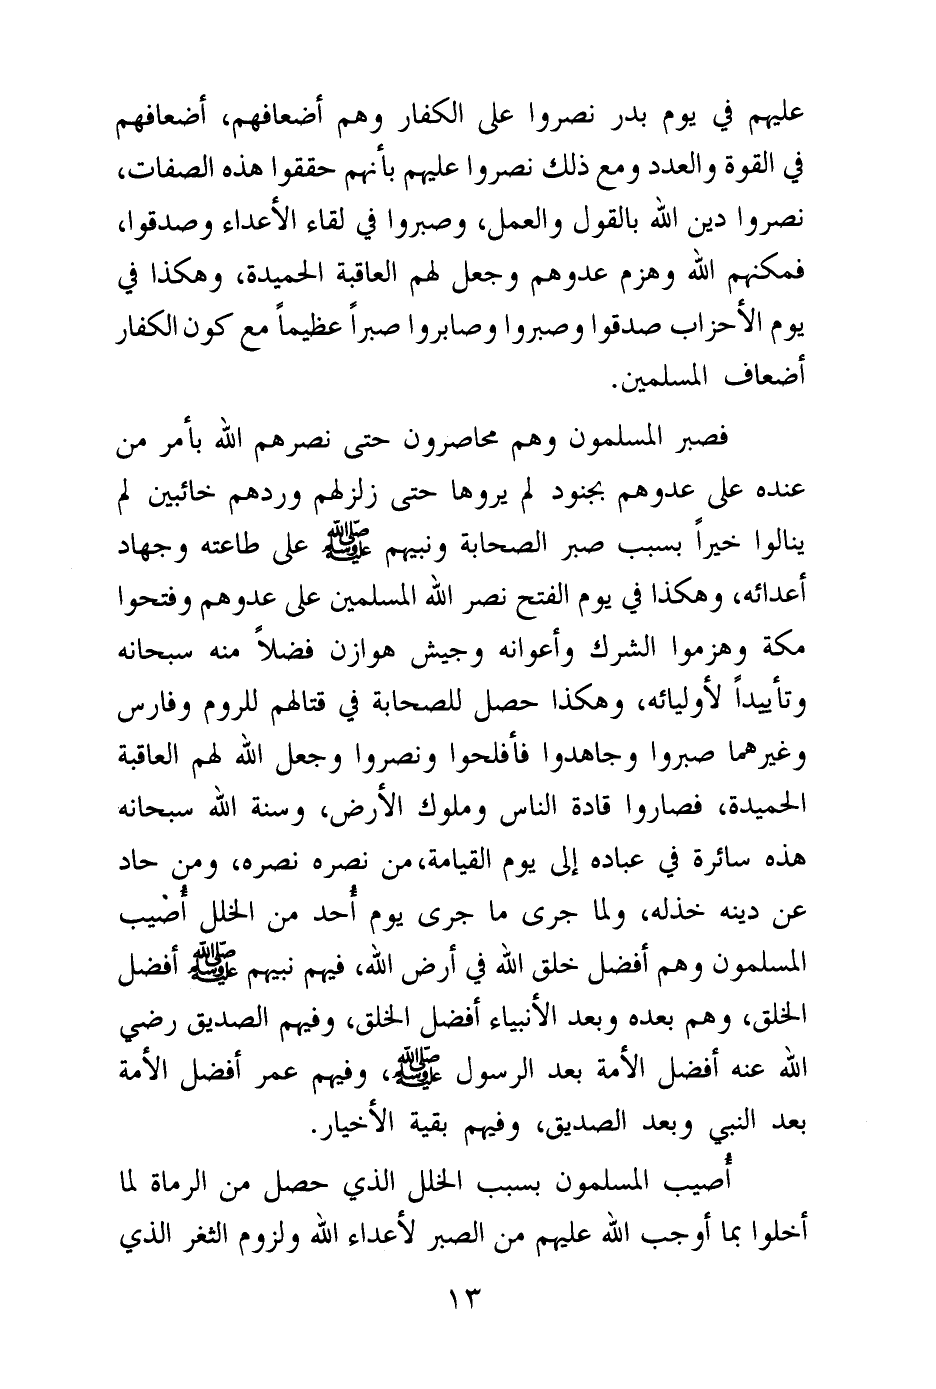 عليهم في يوم بدر نصروا على الكفار وهم أضعافهم، أضعافهم
في القوة والعدد ومع ذلك نصروا عليهم بأنهم حققوا هذه الصفات،
نصروا دين الله بالقول والعمل، وصبروا في لقاء الأعداء وصدقوا،
فمكنهم الله وهزم عدوهم وجعل لهم العاقبة الحميدة، وهكذا في
يوم الأحزاب صدقوا وصبروا وصابروا صبراً عظيماً مع كون الكفار
أضعاف المسلمين.
فصبر المسلمون وهم محاصرون حتى نصرهم الله بأمر من
عنده على عدوهم بجنود لم يروها حتى زلزلهم وردهم خائبين لم
ينالوا خيراً بسبب صبر الصحابة ونبيهم ﷺ على طاعته وجهاد
أعدائه، وهكذا في يوم الفتح نصر الله المسلمين على عدوهم وفتحوا
مكة وهزموا الشرك وأعوانه وجيش هوازن فضلاً منه سبحانه
وتأييداً لأوليائه، وهكذا حصل للصحابة في قتالهم للروم وفارس
وغيرهما صبروا وجاهدوا فأفلحوا ونصروا وجعل الله لهم العاقبة
الحميدة، فصاروا قادة الناس وملوك الأرض، وسنة الله سبحانه
هذه سائرة في عباده إلى يوم القيامة،من نصره نصره، ومن حاد
عن دينه خذله، ولما جرى ما جرى يوم أُحد من الخلل أُضيب
المسلمون وهم أفضل خلق الله في أرض الله، فيهم نبيهم ﷺ أفضل
الخلق، وهم بعده وبعد الأنبياء أفضل الخلق، وفيهم الصديق رضي
الله عنه أفضل الأمة بعد الرسول ﷺ، وفيهم عمر أفضل الأمة
بعد النبي وبعد الصديق، وفيهم بقية الأخيار.
أُصيب المسلمون بسبب الخلل الذي حصل من الرماة لما
أخلوا بما أوجب الله عليهم من الصبر لأعداء الله ولزوم الثغر الذي
١٣